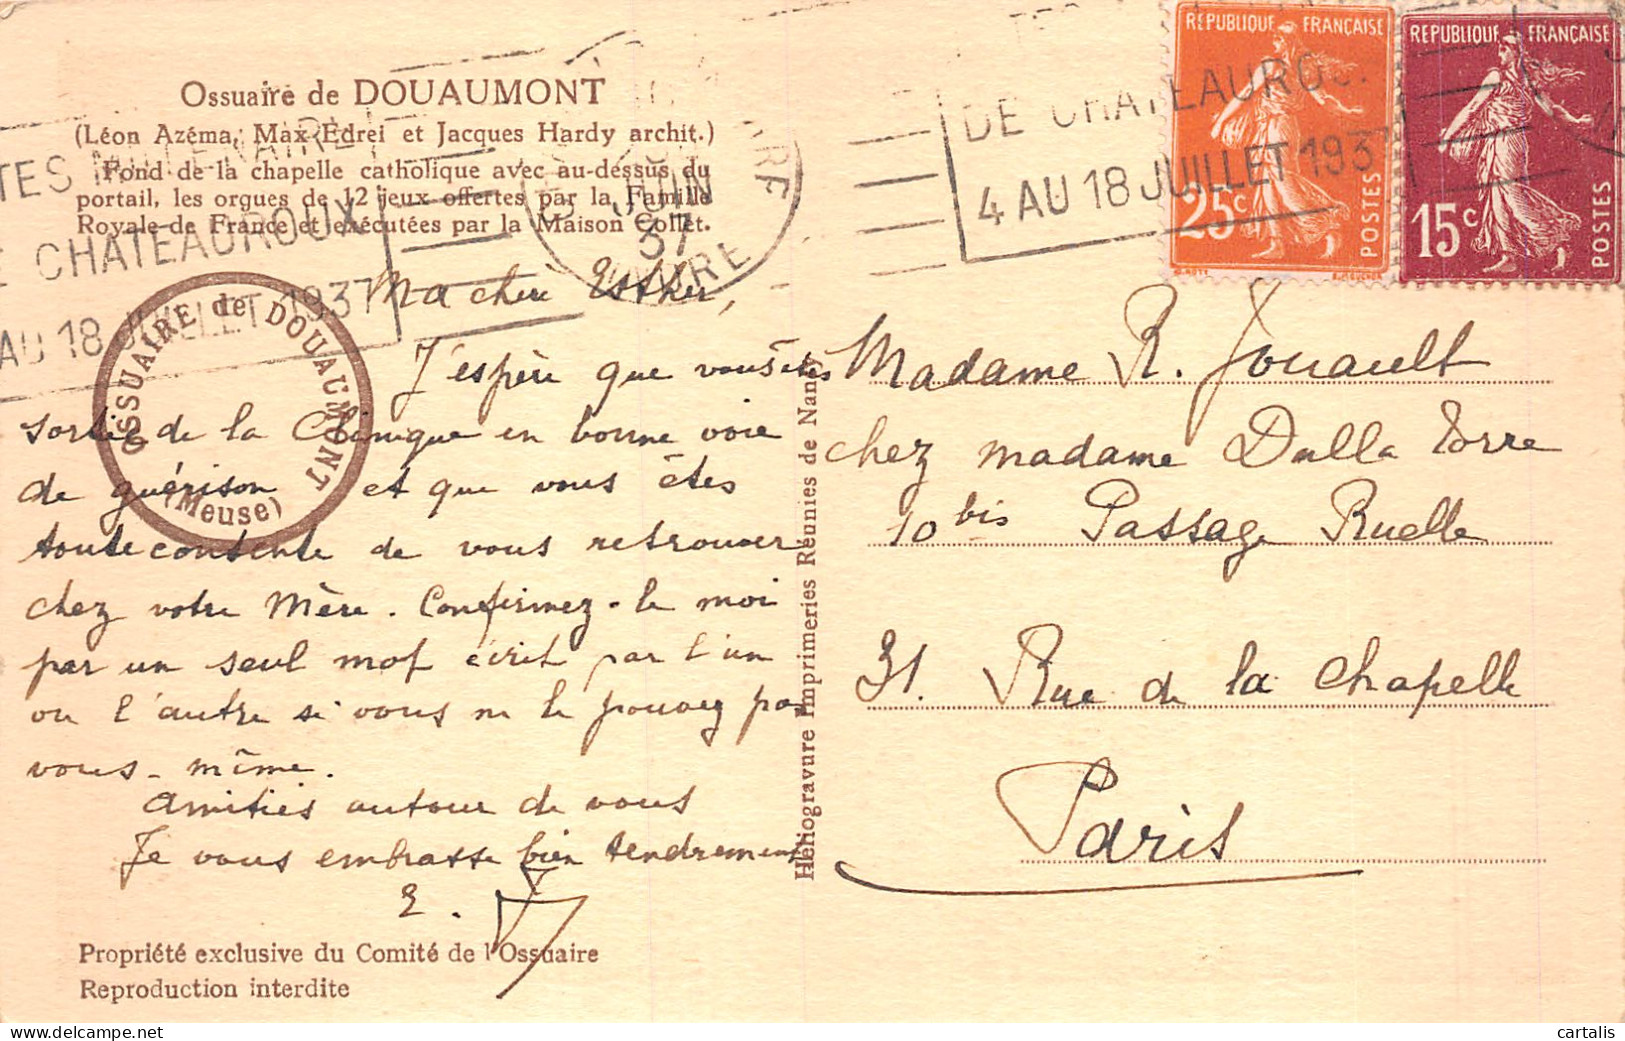 Ossuaire de DOUAUMONT
(Léon Azéma, Max Edrei et Jacques Hardy archit.)
Fond de la chapelle catholique avec au-dessus du
portail, les orgues de 12 jeux offertes par la Famille
Royale de France et exécutées par la Maison Collet.
TES MILLENAIRE
E CHATEAUROUX
AU 18 JUILLET 1937
JUIN
37
INDRE
DE CHATEAUROU
4 AU 18 JUILLET 1937
REPUBLIQUE FRANÇAISE
25c
POSTES
REPUBLIQUE FRANÇAISE
15c
POSTES
OSSUAIRE de DOUAUMONT
(Meuse)
Ma chère Esther,
J'espère que vous êtes
sortie de la Clinique en bonne voie
de guérison et que vous êtes
toute contente de vous retrouver
chez votre Mère. Confirmez-le moi
par un seul mot écrit par l'un
ou l'autre si vous ne le pouvez pas
vous-même.
Amitiés autour de vous
Je vous embrasse bien tendrement
E.
Madame R. Jouault
chez madame Dalla Torre
10 bis Passage Ruelle
31. Rue de la Chapelle
Paris
Héliogravure Imprimeries Réunies de Nancy
Propriété exclusive du Comité de l'Ossuaire
Reproduction interdite
cartalis